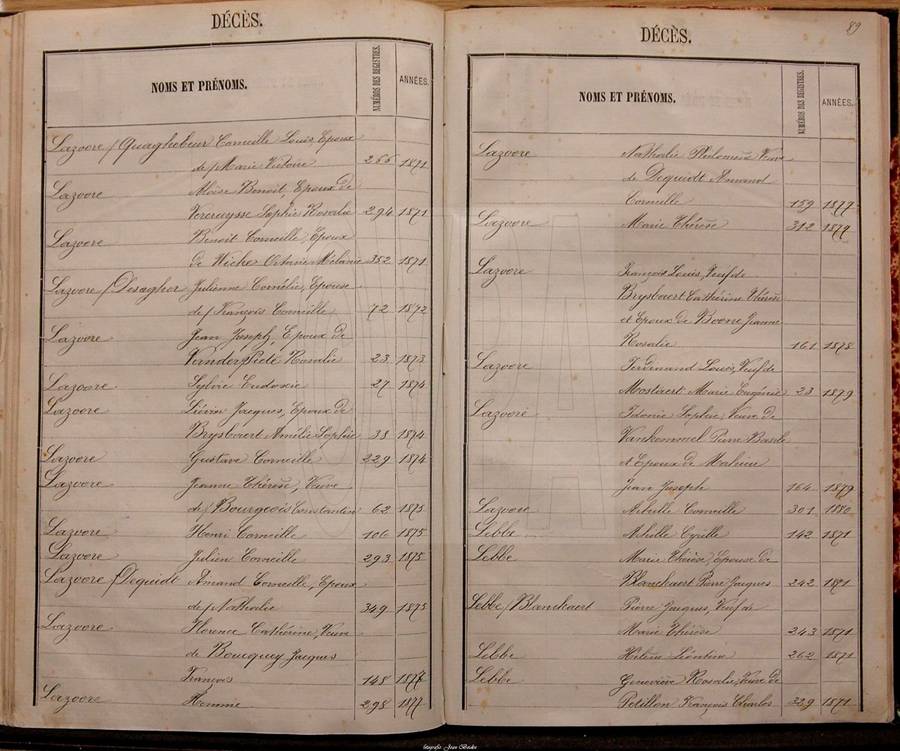 DÉCÈS.
NOMS ET PRÉNOMS.
NUMÉROS DES REGISTRES.
ANNÉES.
Lazoore / Quaghebeur Corneille Louis, Epoux
de / Marie Victoire 266 1871
Lazoore Aloïse Benoit, Epoux de
Vercruysse Sophie Rosalie 294 1871
Lazoore Benoit Corneille, Epoux
de Octavie Mélanie 352 1871
Lazoore / Desagher Julienne Cornélie, Epouse
de / François Corneille 72 1872
Lazoore Jean Joseph, Epoux de
Vanderpiete Rosalie 23 1873
Lazoore Sylvie Eudoxie 27 1874
Lazoore Liévin Jacques, Epoux de
Brysbaert Amélie Sophie 38 1874
Lazoore Gustave Corneille 229 1874
Lazoore Jeanne Thérèse, Veuve
de / Bourgeois Constantin 62 1875
Lazoore Henri Corneille 106 1875
Lazoore Julien Corneille 293 1875
Lazoore / Dequidt Amand Corneille, Epoux
de / Nathalie 349 1875
Lazoore Florence Cathérine, Veuve
de Boucquey Jacques
François 148 1877
Lazoore Homme 298 1877
89
DÉCÈS.
NOMS ET PRÉNOMS.
NUMÉROS DES REGISTRES.
ANNÉES.
Lazoore Nathalie Philomène Veuve
de Dequidt Amand
Corneille 159 1877
Lazoore Marie Thérèse 312 1879
Lazoore François Louis, Veuf de
Brysbaert Cathérine Thérèse
et Epoux de Boerre Jeanne
Rosalie 161 1878
Lazoore Ferdinand Louis, Veuf de
Mostaert Marie Eugénie 23 1879
Lazoore Idonie Sophie, Veuve de
Vankemmel Pierre Basile
et Epouse de Mahieu
Jean Joseph 164 1879
Lazoore Achille Corneille 301 1880
Lebbe Achille Cyrille 142 1871
Lebbe Marie Thérèse, Epouse de
Blanckaert Pierre Jacques 242 1871
Lebbe / Blanckaert Pierre Jacques, Veuf de
Marie Thérèse 243 1871
Lebbe Hélène Léontine 262 1871
Lebbe Geneviève Rosalie, Veuve de
Petillon François Charles 339 1871
fotografie Jean Bockx